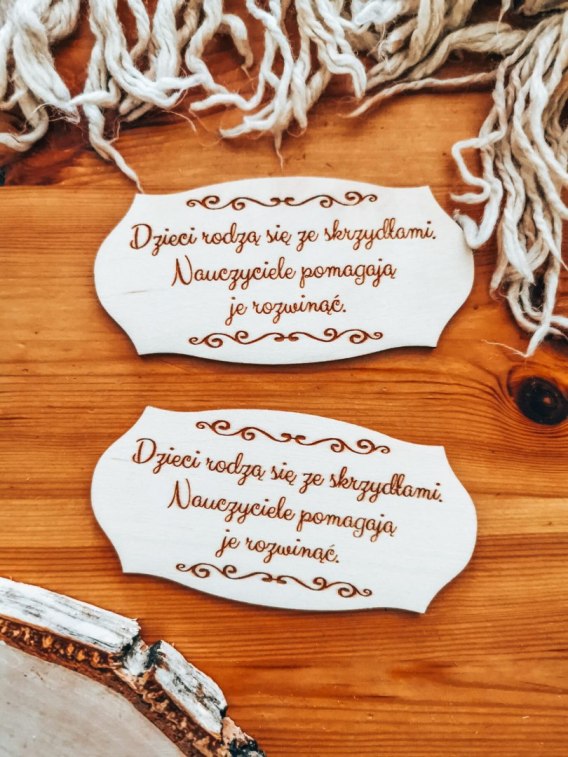 Dzieci rodzą się ze skrzydłami.
Nauczyciele pomagają
je rozwinąć.
Dzieci rodzą się ze skrzydłami.
Nauczyciele pomagają
je rozwinąć.